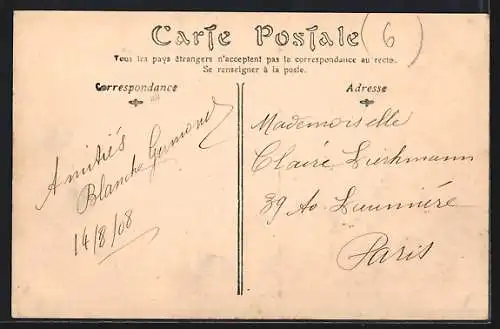 Carte Postale
6
Tous les pays étrangers n'acceptent pas la correspondance au recto.
Se renseigner à la poste.
Correspondance
Adresse
Amitiés
Blanche Germond
14/8/08
Mademoiselle
Claire
39 Av Laumière
Paris